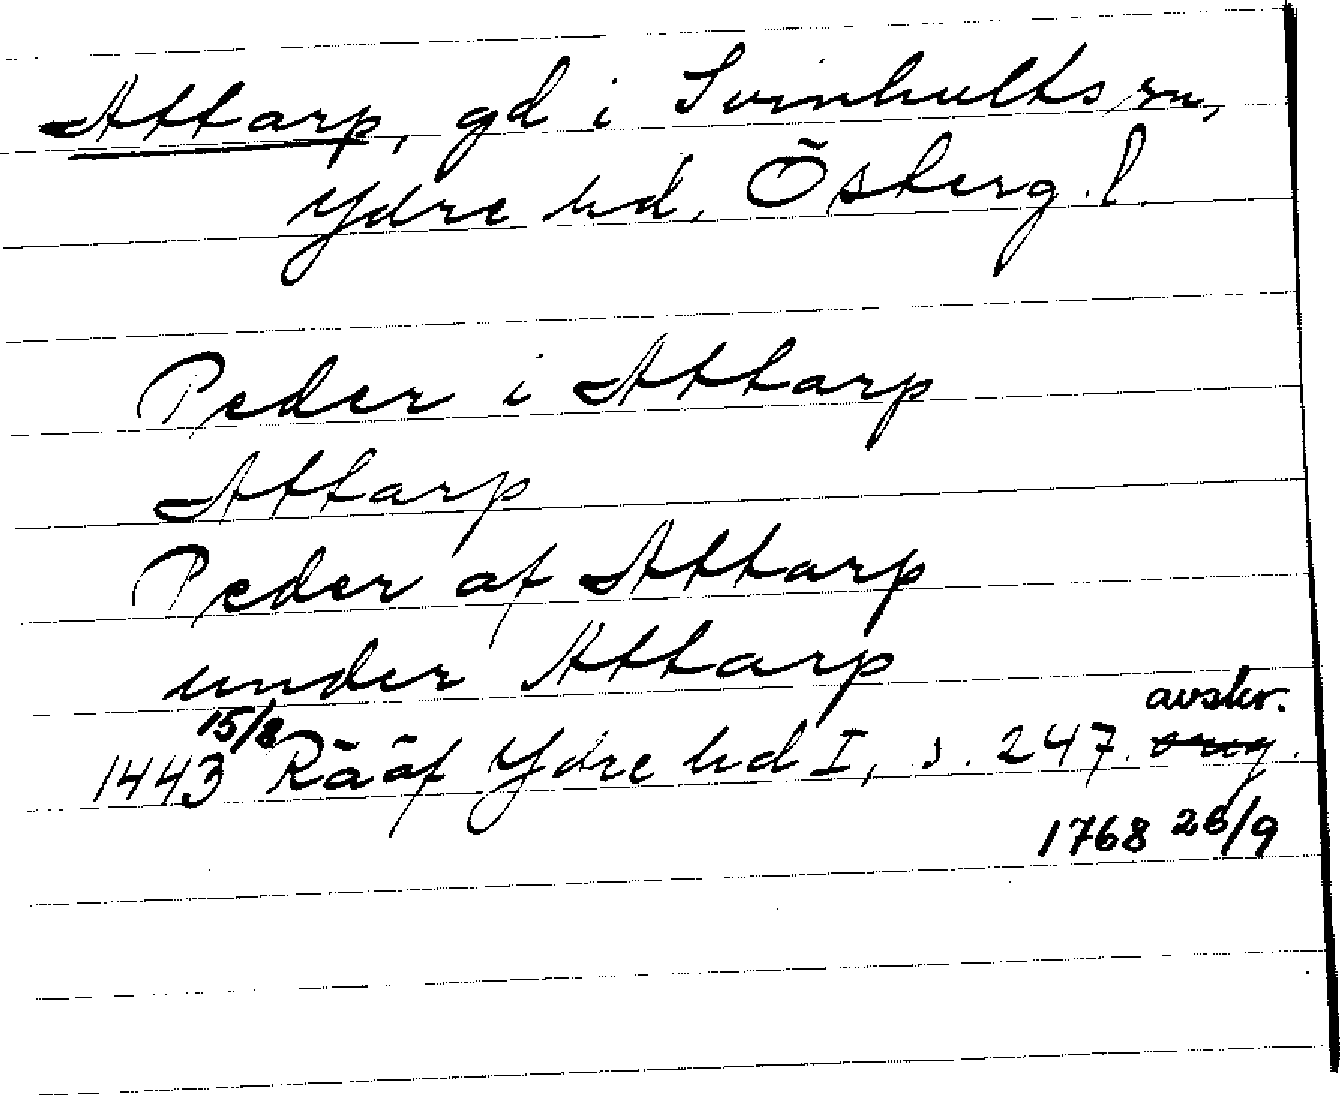 Attarp, gd i Svinhults sn,
Ydre hd, Österg. l
Peder i Attarp
Attarp
Peder af Attarp
under Attarp
1443 15/8 Rääf Ydre hd I, s. 247. orig. avskr.
1768 26/9